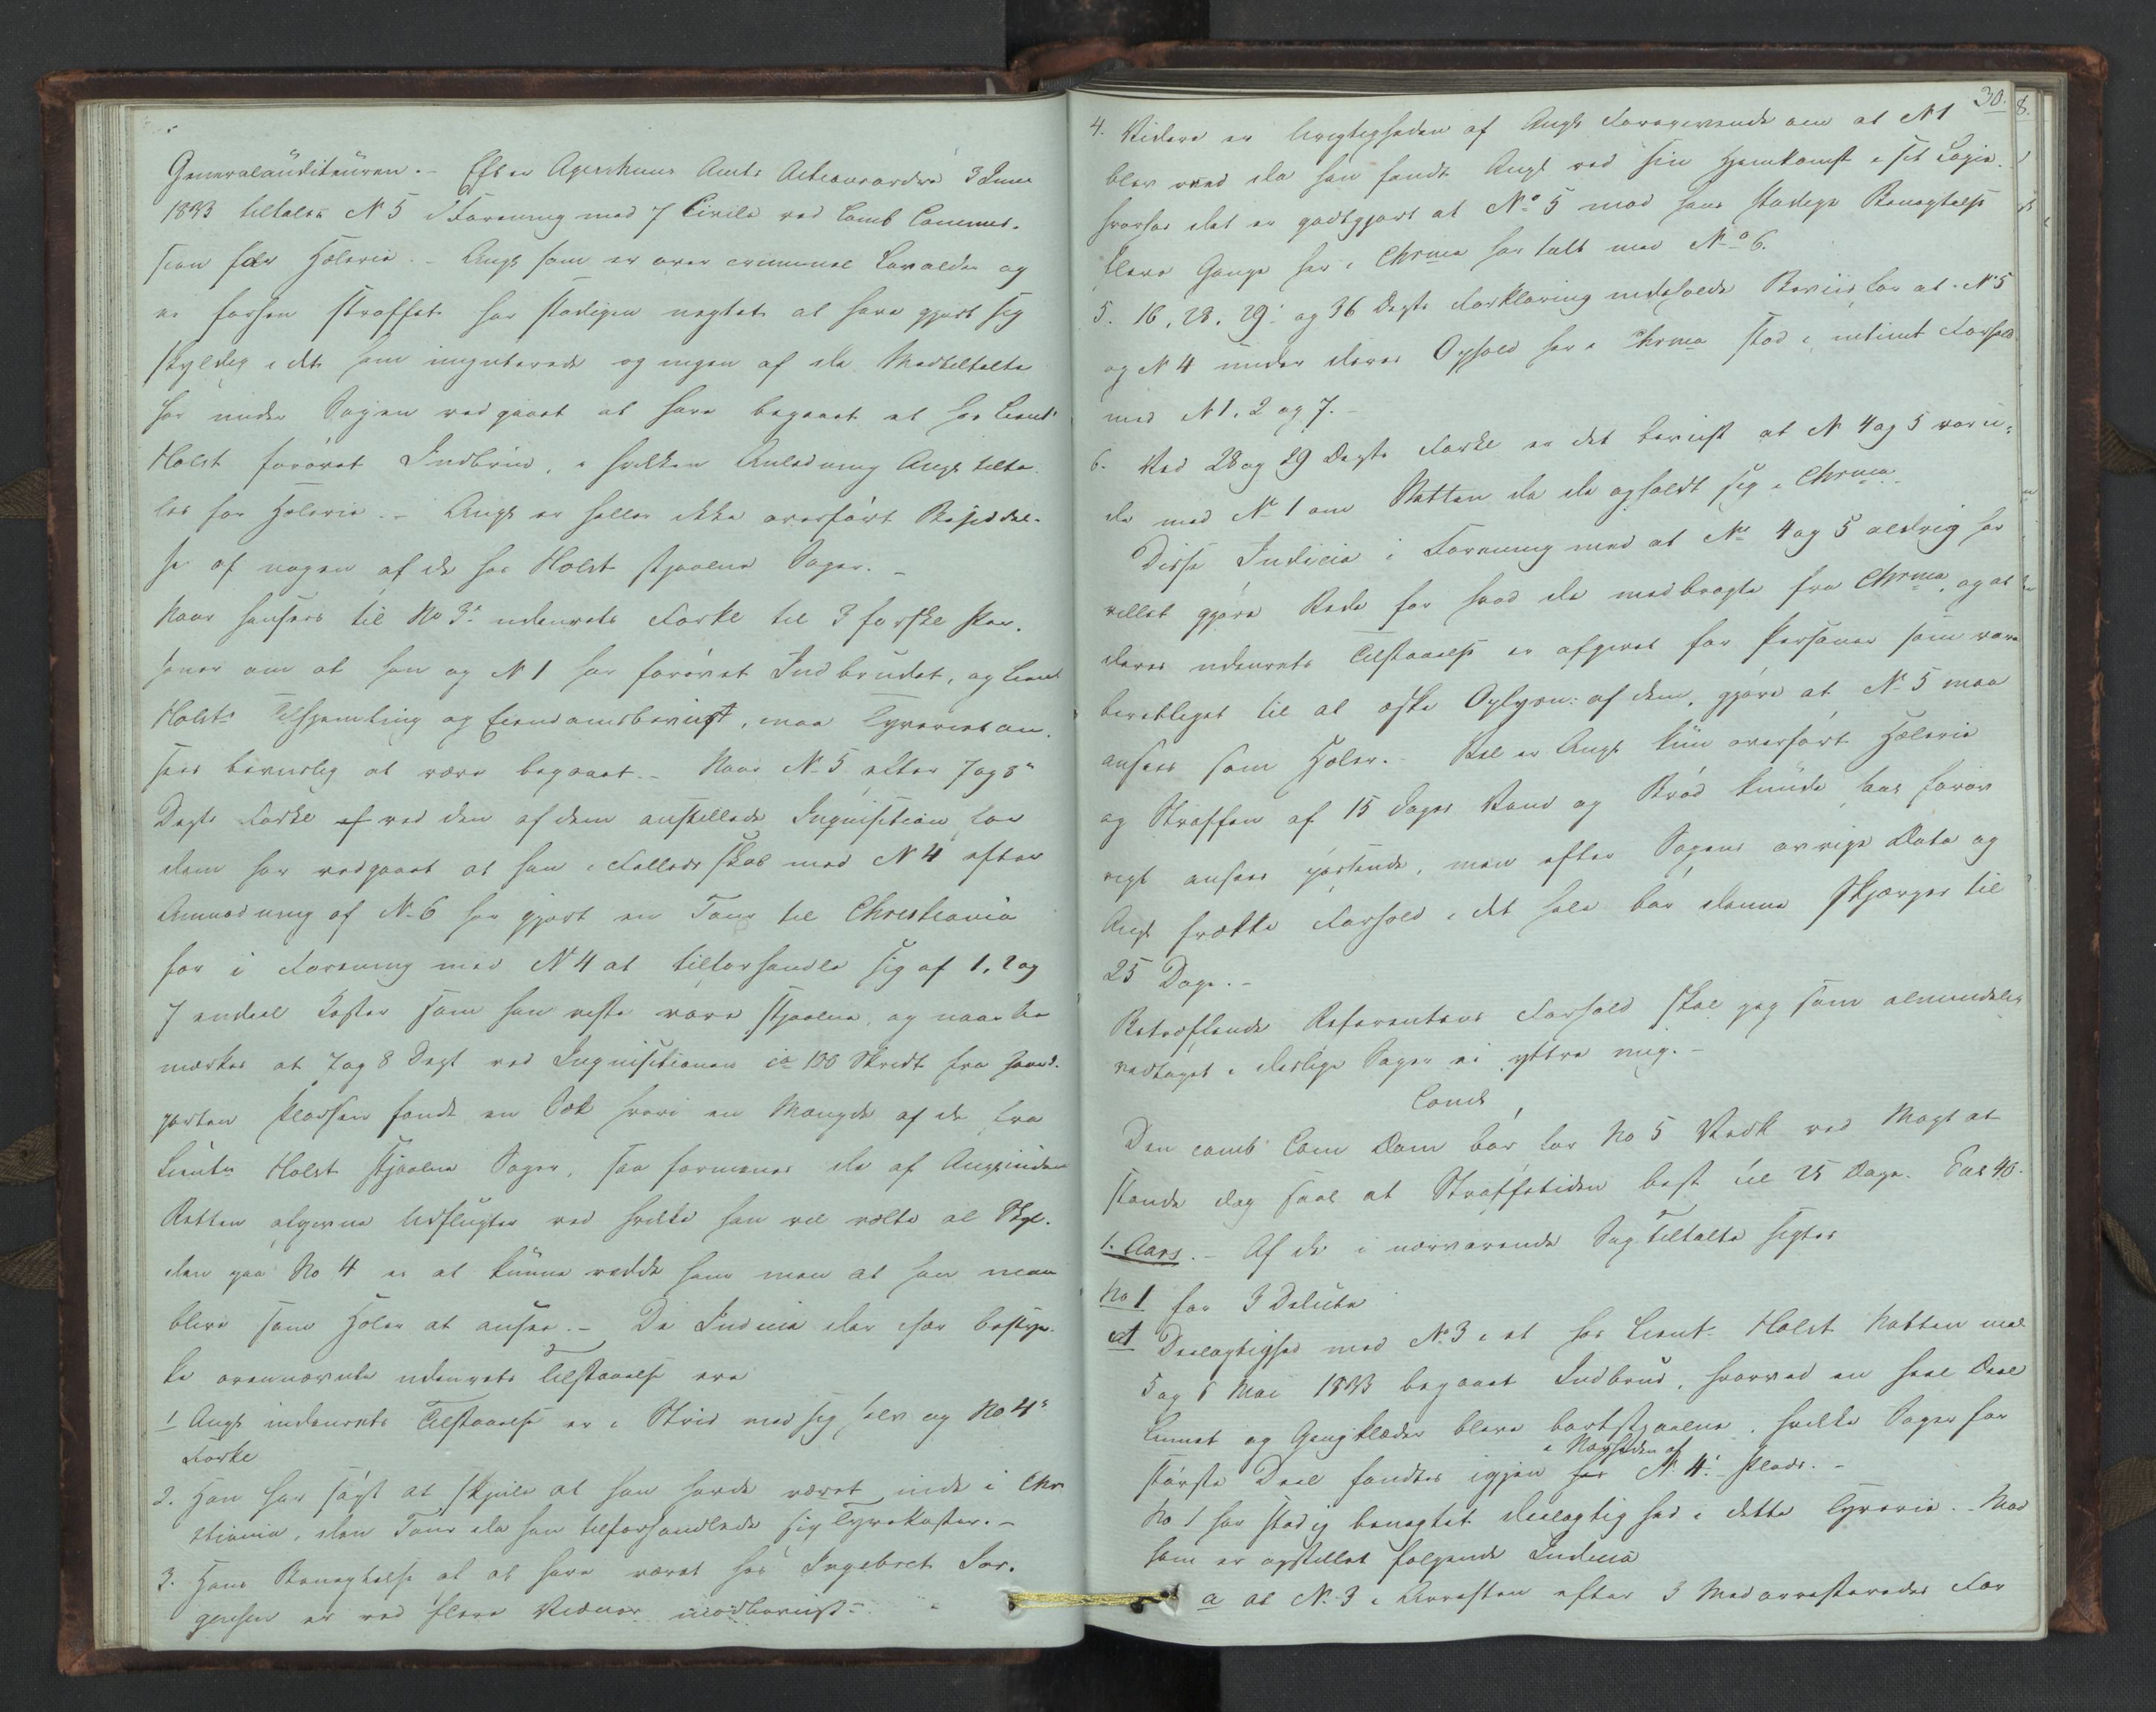 Generalauditeuren. – Efter Agershuus Amts Actionsordre 3 Juni
1833 tiltales N 5 i Forening med 7 Civile ved Comb Commis-
sion for Hæleri. – Angl som er over criminel Lavalder og
ei forhen straffet har stadigen negtet at have gjort sig
skyldig i det ham imputerede og ingen af de Medtiltalte
har under Sagen vedgaaet at have begaaet et hos Lieut
Holst forøvet Indbrud, i hvilken Anledning Angl tilta-
les for Hæleri. – Angl er heller ikke overført Besiddel-
se af nogen af de hos Holst stjaalne Sager. –
Naar hensees til No 3s udenrets Forkl til 3 forskl Per-
soner om at han og N 1 har forøvet Indbrudet, og Lieut
Holsts Tilhjemling og Eiendomsbeviist, maa Tyveriet an-
sees beviislig at være begaaet. – Naar N 5 efter 7 og 8
Degts Forkl af ved den af dem anstillede Inquisition for
dem har vedgaaet at han i Fælledsskab med N 4 efter
Anmodning af N 6 har gjort en Tour til Christiania
for i Forening med N 4 at tilforhandle sig af 1, 2 og
7 endeel Koster som han viste vare stjaalne, og naar be-
mærkes at 7 og 8 Degt ved Inquisitionen ca 100 Skridt fra
Pladsen fandt en Sæk hvori en Mængde af de fra
Lieutn Holst stjaalne Sager, saa formenes de af Angl inden
Retten afgivne Udflugter ved hvilke han vil vælte al Skyl-
den paa No 4 ei at kunne redde ham men at han maa
blive som Hæler at ansee. – De Indicia der især bestyr-
ke ovennævnte udenrets Tilstaaelse ere
1 Angl indenrets Tilstaaelse er i Strid med sig selv og No 4s
Forkl
2. Han har søgt at skjule at han havde været inde i Chri
stiania, den Tour da han tilforhandlede sig Tyvekoster. –
3. Hans Benegtelse af at have været hos Ingebret Jør-
gensen er ved flere Vidner modbeviist –
30.
4. Videre er Urigtigheden af Angl Foregivende om at N 1
blev vred da han fandt Angl ved sin Hjemkomst i sit Logie.
hvorhos det er godtgjort at No 5 mod hans stadige Benegtelse
flere Gange her i Chrnia har talt med No 6.
5. 16, 28, 29 og 36 Degts Forklaring indeholde Beviis for at N 5
og N 4 under deres Ophold her i Chrnia stod i intimt Forhold
med N 1, 2 og 7. –
6. Ved 28 og 29 Degts Forkl er det beviist at N 4 og 5 var u-
de med N 1 om Natten da de opholdt sig i Chrnia
Disse Indicia i Forening med at No 4 og 5 aldrig har
villet gjøre Rede for hvad de medbragte fra Chrnia, og at
deres udenrets Tilstaaelse er afgivet for Personer som vare
berettiget til at æske Oplysn: af dem, gjøre at N 5 maa
ansees som Hæler. – Vel er Angl kun overført Hæleri
og Straffen af 15 Dages Vand og Brød kunde som forøv
rigt ansees passende, men efter Sagens øvrige Data og
Angl frække Forhold i det hele bør denne skjærpes til
25 Dage. –
Betræffende Referentens Forhold skal jeg som almindelig
vedtaget i deslige Sager ei yttre mig. –
Concl
Den comb Com Dom bør for No 5 Vedk ved Magt at
stande dog saal at Straffetiden best til 25 Dage.
1. Aars. – Af de i nærværende Sag Tiltalte sigtes
No 1 for 3 Delicta
A Deelagtighed med No 3 i et hos Lieut Holst Natten mel
5 og 6 Mai 1833 begaaet Indbrud, hvorved en heel Deel
Linnet og Gangklæder bleve bortstjaalne, hvilke Sager for
største Deel fandtes igjen hos i Nærheden af N 4s Plads. –
No 1 har stadig benegtet Deelagtighed i dette Tyveri. – Mod
ham er opstillet følgende Indicia
a at N. 3 i Arresten efter 3 Medarresteredes For